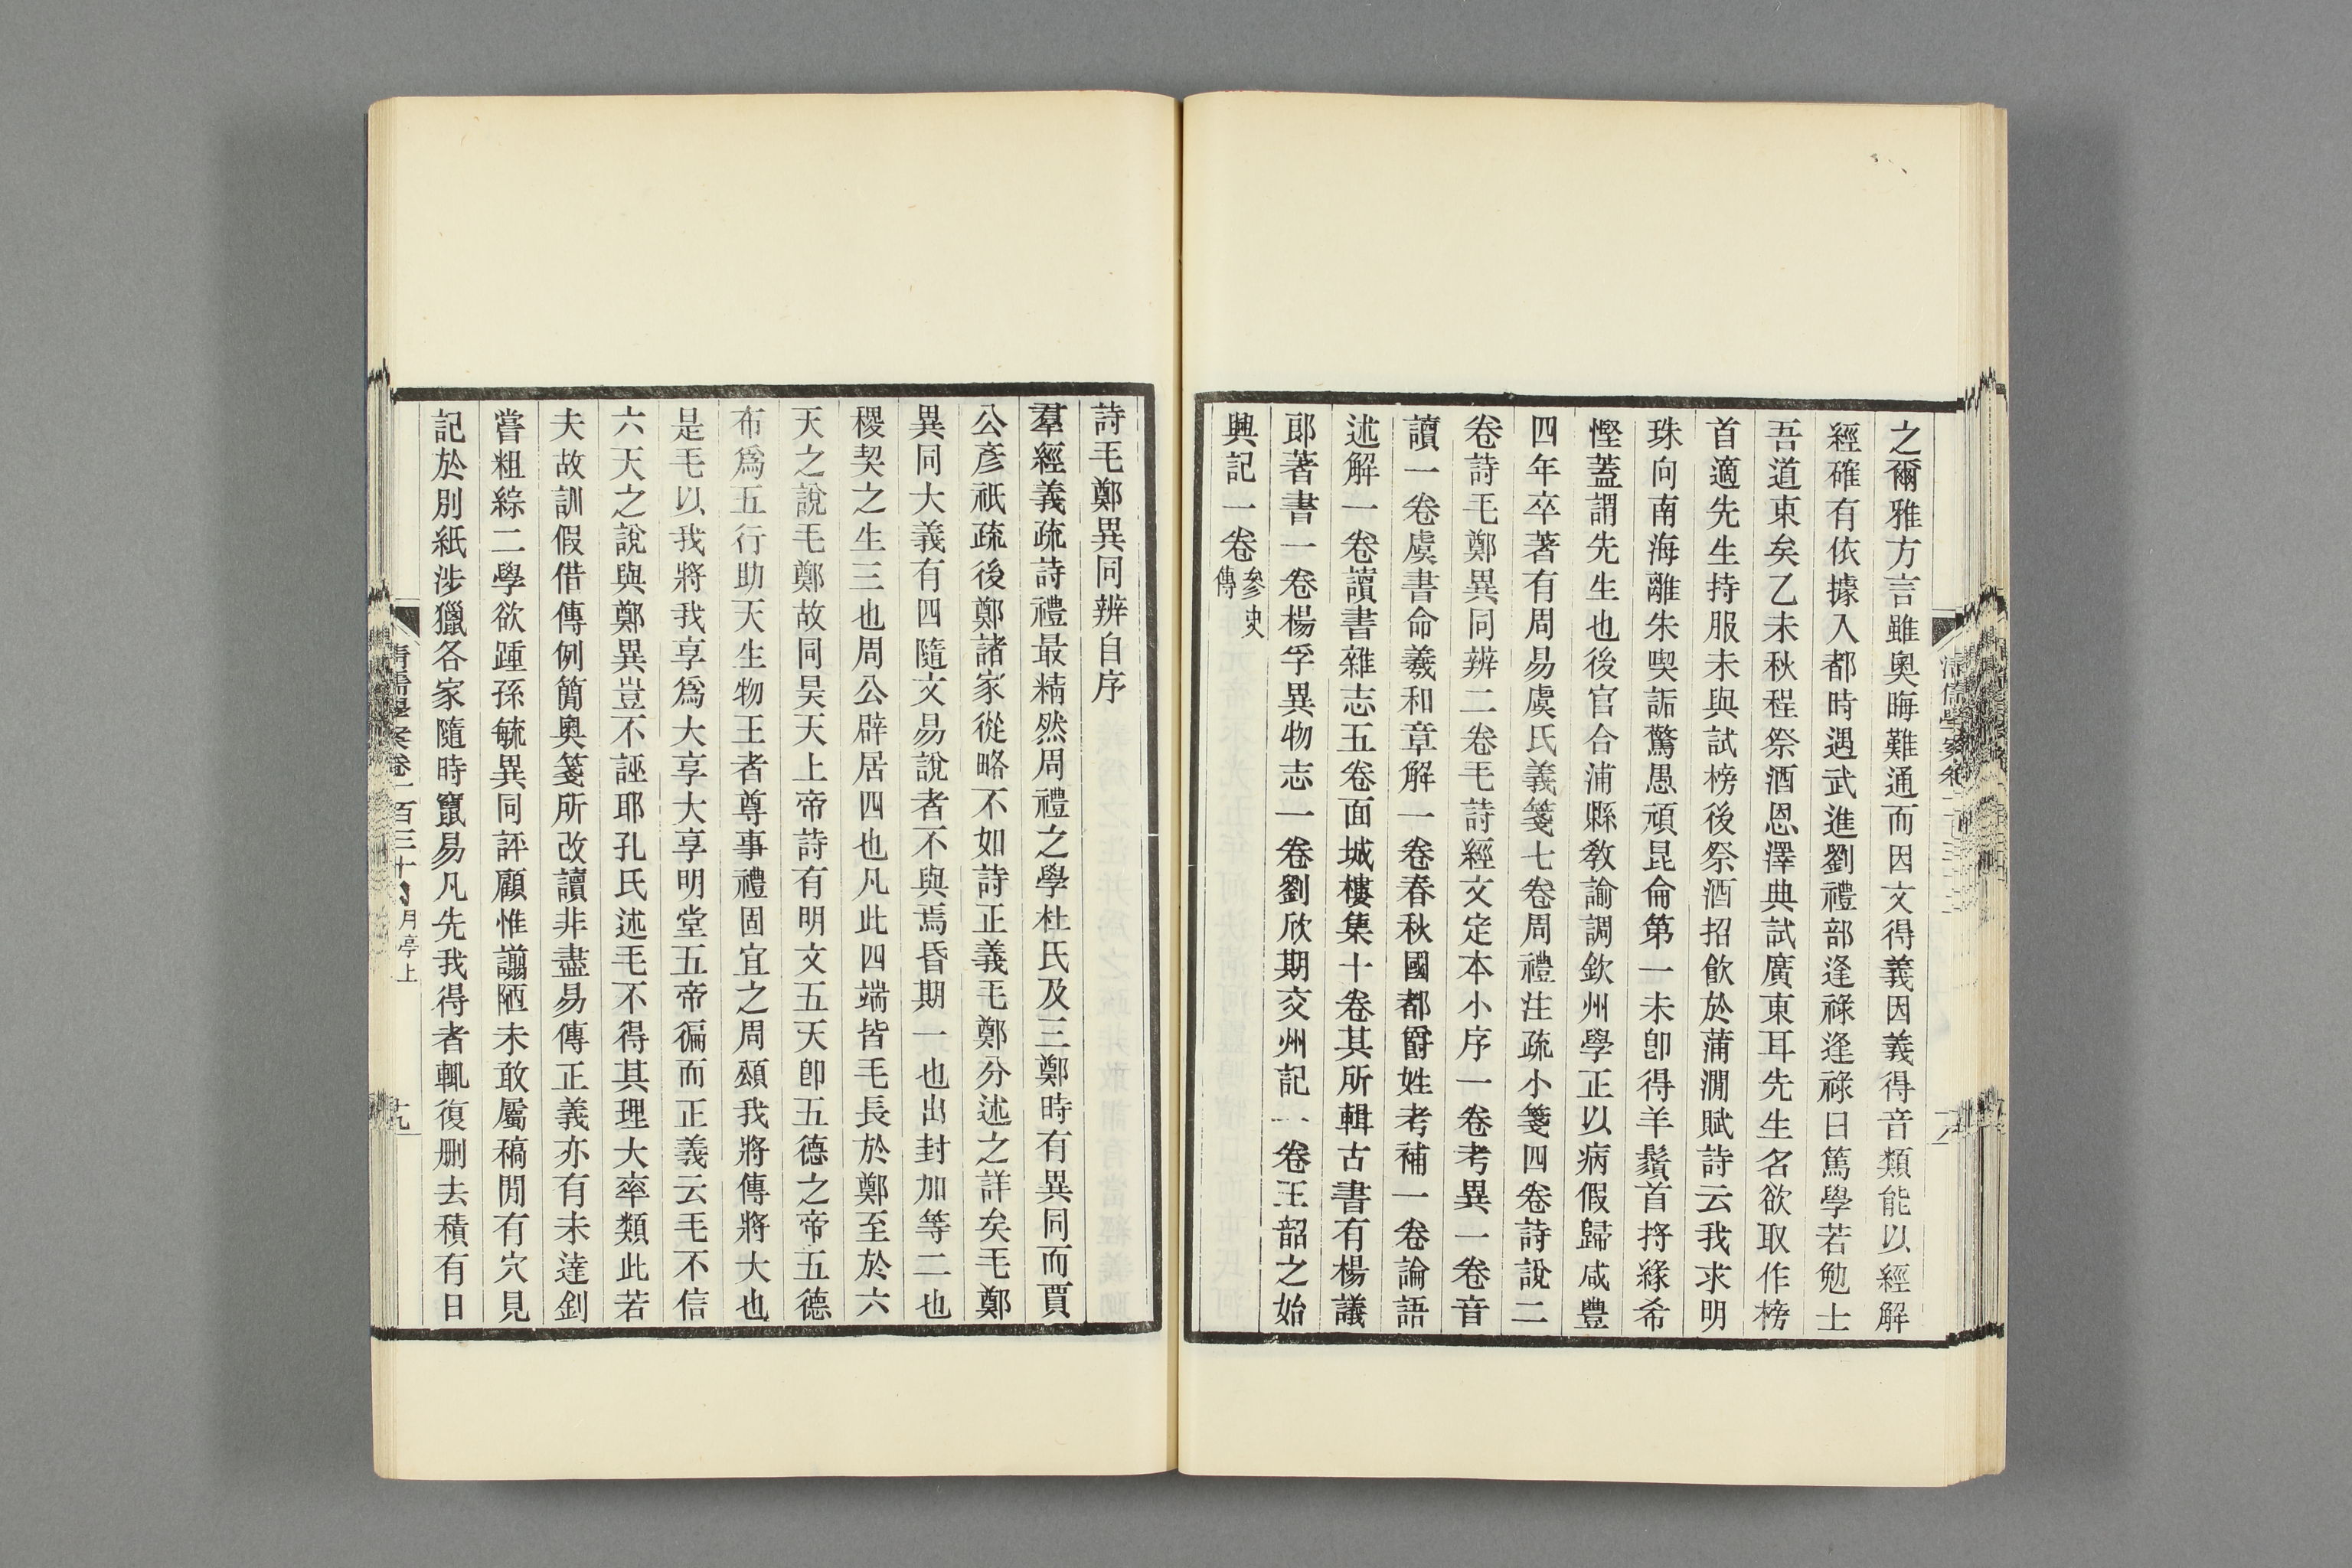 之爾雅方言雖奧晦難通而因文得義因義得音類能以經解
經確有依據入都時遇武進劉禮部逢祿逢祿曰篤學若勉士
吾道東矣乙未秋程祭酒恩澤典試廣東耳先生名欲取作榜
首適先生持服未與試榜後祭酒招飲於蒲澗賦詩云我求明
珠向南海離朱喫詬驚愚頑昆侖第一未卽得羊鬚首捋緣希
慳蓋謂先生也後官合浦縣教諭調欽州學正以病假歸咸豐
四年卒著有周易虞氏義箋七卷周禮注疏小箋四卷詩說二
卷詩毛鄭異同辨二卷毛詩經文定本小序一卷考異一卷音
讀一卷虞書命羲和章解一卷春秋國都爵姓考補一卷論語
述解一卷讀書雜志五卷面城樓集十卷其所輯古書有楊議
郎著書一卷楊孚異物志一卷劉欣期交州記一卷王韶之始
興記一卷參史傳
詩毛鄭異同辨自序
羣經義疏詩禮最精然周禮之學杜氏及三鄭時有異同而賈
公彥祇疏後鄭諸家從略不如詩正義毛鄭分述之詳矣毛鄭
異同大義有四隨文易說者不與焉昏期一也出封加等二也
稷契之生三也周公辟居四也凡此四端皆毛長於鄭至於六
天之說毛鄭故同昊天上帝詩有明文五天卽五德之帝五德
布爲五行助天生物王者尊事禮固宜之周頌我將傳將大也
是毛以我將我享爲大享大享明堂五帝徧而正義云毛不信
六天之說與鄭異豈不誣耶孔氏述毛不得其理大率類此若
夫故訓假借傳例簡奧箋所改讀非盡易傳正義亦有未達釗
嘗粗綜二學欲踵孫毓異同評顧惟譾陋未敢屬稿閒有穴見
記於別紙涉獵各家隨時竄易凡先我得者輒復删去積有日
清儒學案卷一百三十 月亭上
十九